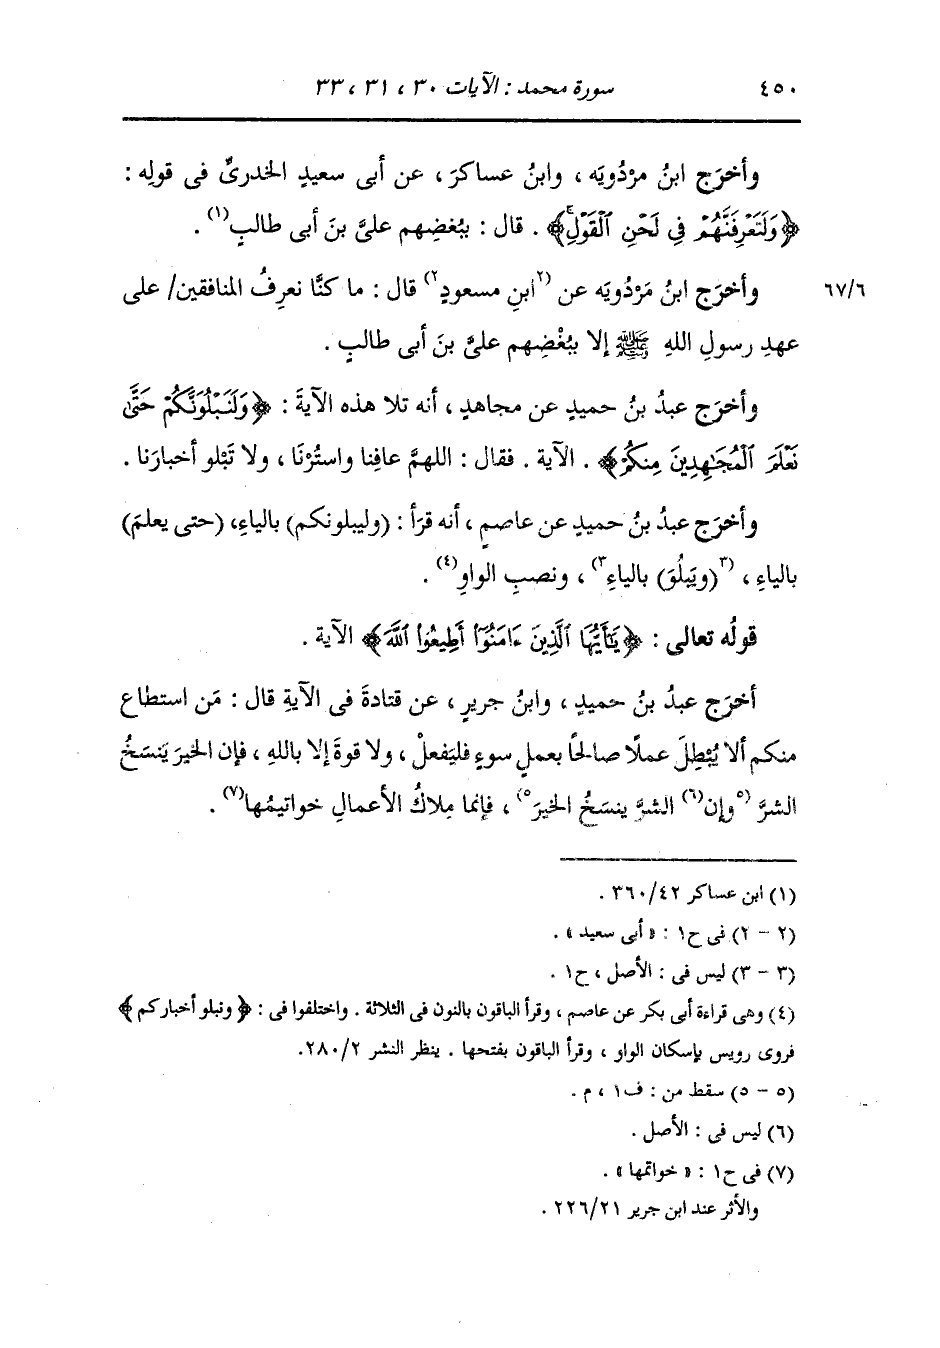 ٤٥٠ سورة محمد : الآيات ٣٠ ، ٣١ ، ٣٣
وأخرَج ابنُ مرْدُويَه ، وابنُ عساكرَ ، عن أبى سعيدٍ الخدرىِّ فى قولِه :
﴿وَلَتَعْرِفَنَّهُمْ فِي لَحْنِ ٱلْقَوْلِ﴾ . قال : ببُغضِهم علىَّ بنَ أبى طالبٍ(١) .
٦٧/٦ وأخرَج ابنُ مَرْدُويَه عن (٢ابنِ مسعودٍ٢) قال : ما كنَّا نعرِفُ المنافقين/ على
عهدِ رسولِ اللهِ ﷺ إلا ببُغْضِهم علىَّ بنَ أبى طالبٍ .
وأخرَج عبدُ بنُ حميدٍ عن مجاهدٍ ، أنه تلا هذه الآيةَ : ﴿وَلَنَبْلُوَنَّكُمْ حَتَّىٰ
نَعْلَمَ ٱلْمُجَٰهِدِينَ مِنكُمْ﴾ . الآية . فقال : اللهمَّ عافِنا واستُرْنَا ، ولا تَبْلو أخبارَنا .
وأخرَج عبدُ بنُ حميدٍ عن عاصمٍ ، أنه قرَأ : (وليبلونكم) بالياءِ، (حتى يعلمَ)
بالياءِ ، (٣(ويَبلُوَ) بالياءِ٣) ، ونصبِ الواوِ(٤) .
قولُه تعالى : ﴿يَٰٓأَيُّهَا ٱلَّذِينَ ءَامَنُوٓا۟ أَطِيعُوا۟ ٱللَّهَ﴾ الآية .
أخرَج عبدُ بنُ حميدٍ ، وابنُ جريرٍ ، عن قتادةَ فى الآيةِ قال : مَن استطاع
منكم ألا يُبْطِلَ عملًا صالحًا بعملٍ سوءٍ فليَفعلْ ، ولا قوةَ إلا باللهِ ، فإن الخيرَ يَنسَخُ
الشرَّ (٥وإن(٦) الشرَّ ينسَخُ الخيرَ٥) ، فإنما مِلاكُ الأعمالِ خواتيمُها(٧) .
(١) ابن عساكر ٣٦٠/٤٢ .
(٢ - ٢) فى ح١ : « أبى سعيد » .
(٣ - ٣) ليس فى : الأصل ، ح١ .
(٤) وهى قراءة أبى بكر عن عاصم ، وقرأ الباقون بالنون فى الثلاثة . واختلفوا فى : ﴿ونبلو أخباركم﴾
فروى رويس بإسكان الواو ، وقرأ الباقون بفتحها . ينظر النشر ٢٨٠/٢.
(٥ - ٥) سقط من : ف١ ، م .
(٦) ليس فى : الأصل .
(٧) فى ح١ : « خواتمها » .
والأثر عند ابن جرير ٢٢٦/٢١ .